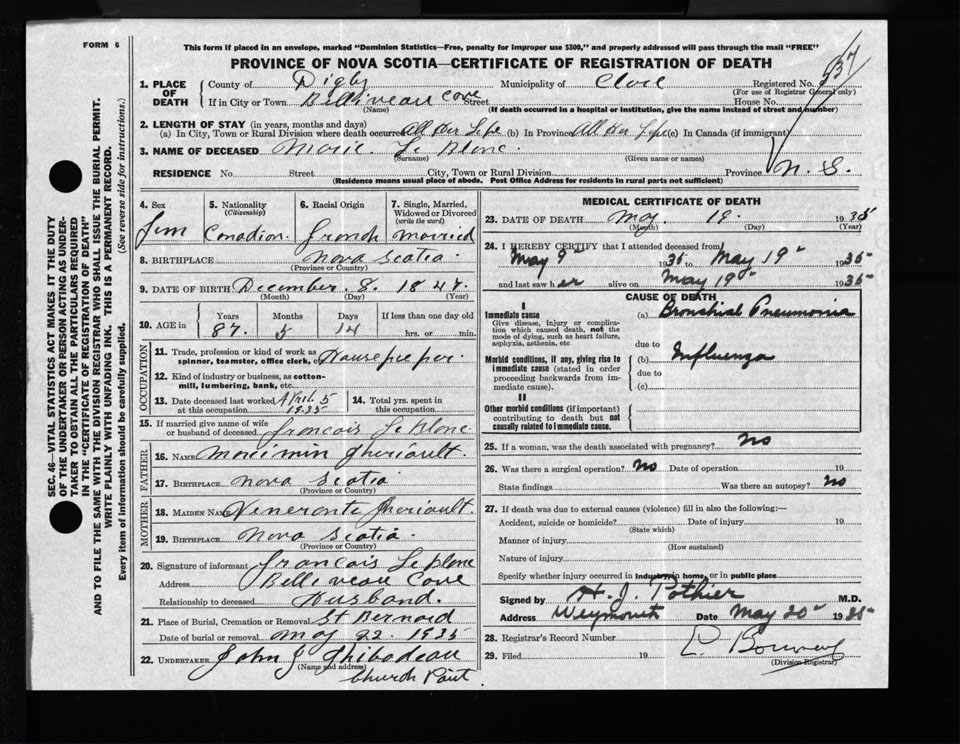 FORM 6
This form if placed in an envelope, marked "Dominion Statistics—Free, penalty for improper use $300," and properly addressed will pass through the mail "FREE"
PROVINCE OF NOVA SCOTIA—CERTIFICATE OF REGISTRATION OF DEATH
SEC. 46—VITAL STATISTICS ACT MAKES IT THE DUTY
OF THE UNDERTAKER OR PERSON ACTING AS UNDER-
TAKER TO OBTAIN ALL THE PARTICULARS REQUIRED
IN THE "CERTIFICATE OF REGISTRATION OF DEATH"
AND TO FILE THE SAME WITH THE DIVISION REGISTRAR WHO SHALL ISSUE THE BURIAL PERMIT.
WRITE PLAINLY WITH UNFADING INK. THIS IS A PERMANENT RECORD.
Every item of information should be carefully supplied. (See reverse side for instructions.)
1. PLACE OF DEATH County of Digby Municipality of Clare Registered No. 937
(For use of Registrar General only)
If in City or Town Belliveau Cove Street House No.
(Name) (If death occurred in a hospital or institution, give the name instead of street and number)
2. LENGTH OF STAY (in years, months and days)
(a) In City, Town or Rural Division where death occurred All Her Life (b) In Province All Her Life (c) In Canada (if immigrant)
3. NAME OF DECEASED Marie Le Blanc
(Surname) (Given name or names)
RESIDENCE No. Street City, Town or Rural Division Province N. S.
(Residence means usual place of abode. Post Office Address for residents in rural parts not sufficient)
4. Sex Fem
5. Nationality (Citizenship) Canadian
6. Racial Origin French
7. Single, Married, Widowed or Divorced (write the word) Married
8. BIRTHPLACE Nova Scotia
(Province or Country)
9. DATE OF BIRTH December 8. 1847
(Month) (Day) (Year)
10. AGE in Years 87 Months 5 Days 14 If less than one day old hrs. or min.
OCCUPATION
11. Trade, profession or kind of work as spinner, teamster, office clerk, etc. Housekeeper
12. Kind of industry or business, as cotton-mill, lumbering, bank, etc.
13. Date deceased last worked at this occupation April 5 1935
14. Total yrs. spent in this occupation
15. If married give name of wife or husband of deceased Francois Le Blanc
FATHER
16. NAME Theriault
17. BIRTHPLACE Nova Scotia
(Province or Country)
MOTHER
18. MAIDEN NAME Theriault
19. BIRTHPLACE Nova Scotia
(Province or Country)
20. Signature of informant Francois Le Blanc
Address Belliveau Cove
Relationship to deceased Husband.
21. Place of Burial, Cremation or Removal St Bernard
Date of burial or removal May 22. 1935
22. UNDERTAKER John J Thibodeau
(Name and address) Church Point
MEDICAL CERTIFICATE OF DEATH
23. DATE OF DEATH May 19. 1935
(Month) (Day) (Year)
24. I HEREBY CERTIFY that I attended deceased from
May 9th 1935 to May 19th 1935
and last saw her alive on May 19th 1935
CAUSE OF DEATH
I
Immediate cause
Give disease, injury or complication which caused death, not the mode of dying, such as heart failure, asphyxia, asthenia, etc.
(a) Bronchial Pneumonia
due to
Morbid conditions, if any, giving rise to immediate cause (stated in order proceeding backwards from immediate cause).
(b) Influenza
due to
(c)
II
Other morbid conditions (if important) contributing to death but not causally related to immediate cause.
25. If a woman, was the death associated with pregnancy? No
26. Was there a surgical operation? No Date of operation 19
State findings Was there an autopsy? No
27. If death was due to external causes (violence) fill in also the following:—
Accident, suicide or homicide? Date of injury 19
(State which)
Manner of injury
(How sustained)
Nature of injury
Specify whether injury occurred in industry, in home, or in public place
Signed by H. J. Pothier M.D.
Address Weymouth Date May 20th 1935
28. Registrar's Record Number
29. Filed 19
(Division Registrar)